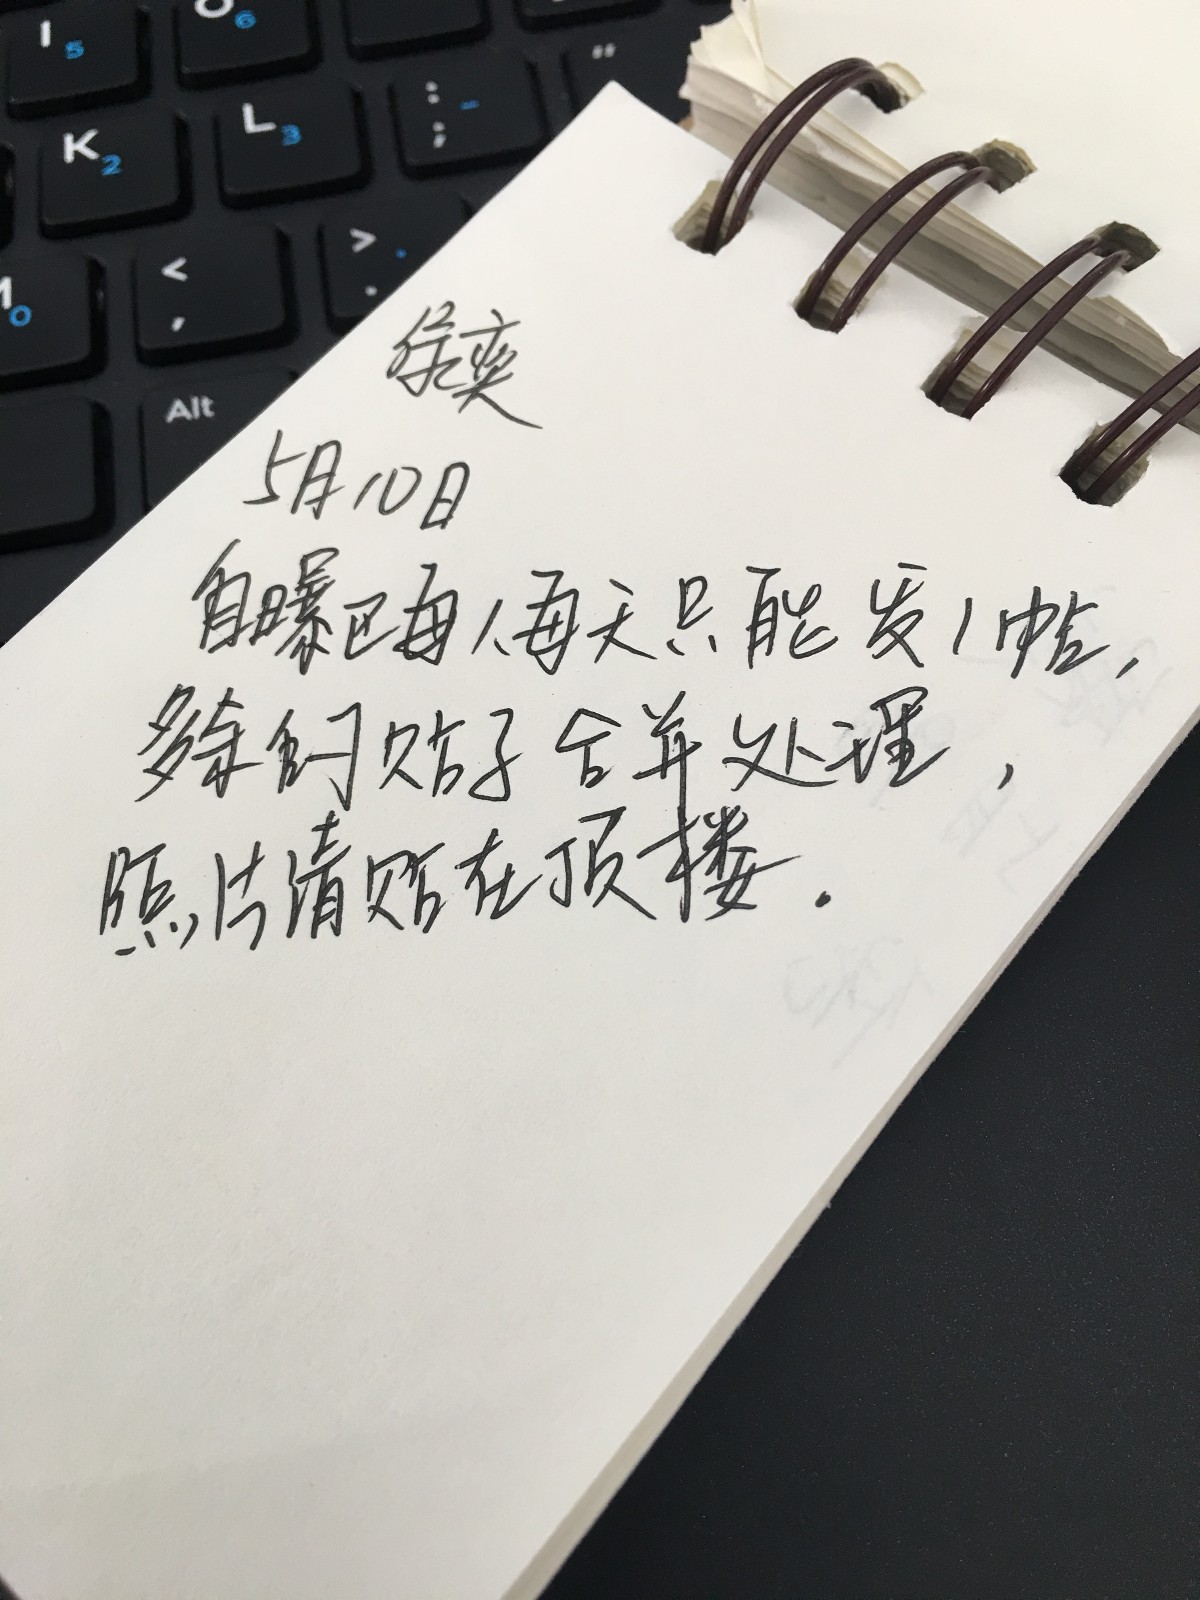 I 5
O 6
K 2
L 3
: -
;
"
M 0
<
,
> .
.
Alt
徐奕
5月10日
自曝吧每人每天只能发1帖,
多余的贴子合并处理,
照片请贴在顶楼.